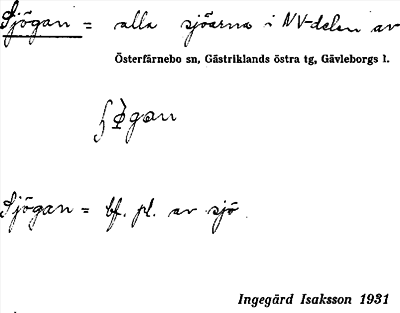 Sjögan = alla sjöarna i NV-delen av
Österfärnebo sn, Gästriklands östra tg, Gävleborgs l.
Sjögan = bf. pl. av sjö
Ingegärd Isaksson 1931